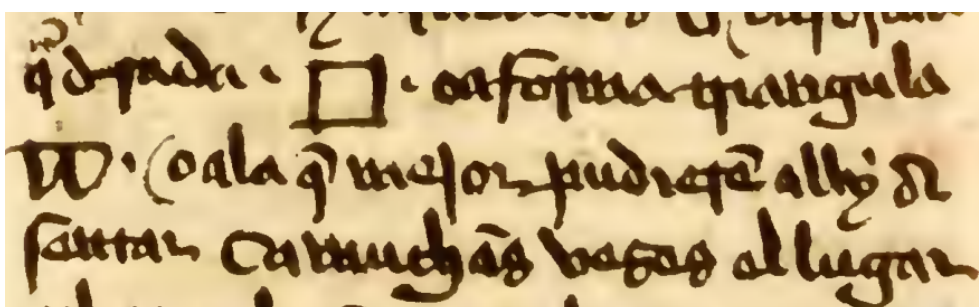 q̃drada · □ · o a forma triangula
· o a la q̃ mejor pudierẽ allý aſ
sentar Ca muchãs veses el lugar